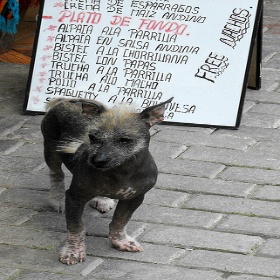 CREMA DE ESPARRAGOS
DE MAIZ ANDINO
PLATO DE FONDO.
ALPACA ALA PARRILLA
ALPACA EN SALSA ANDINA
BISTEC A LA CHORRILLANA
BISTEC CON PAPAS
TRUCHA A LA PARRILLA
TRUCHA AL MACHO
POLLO A LA PARRILLA
SPAGUETY A LA
A LA
FREE